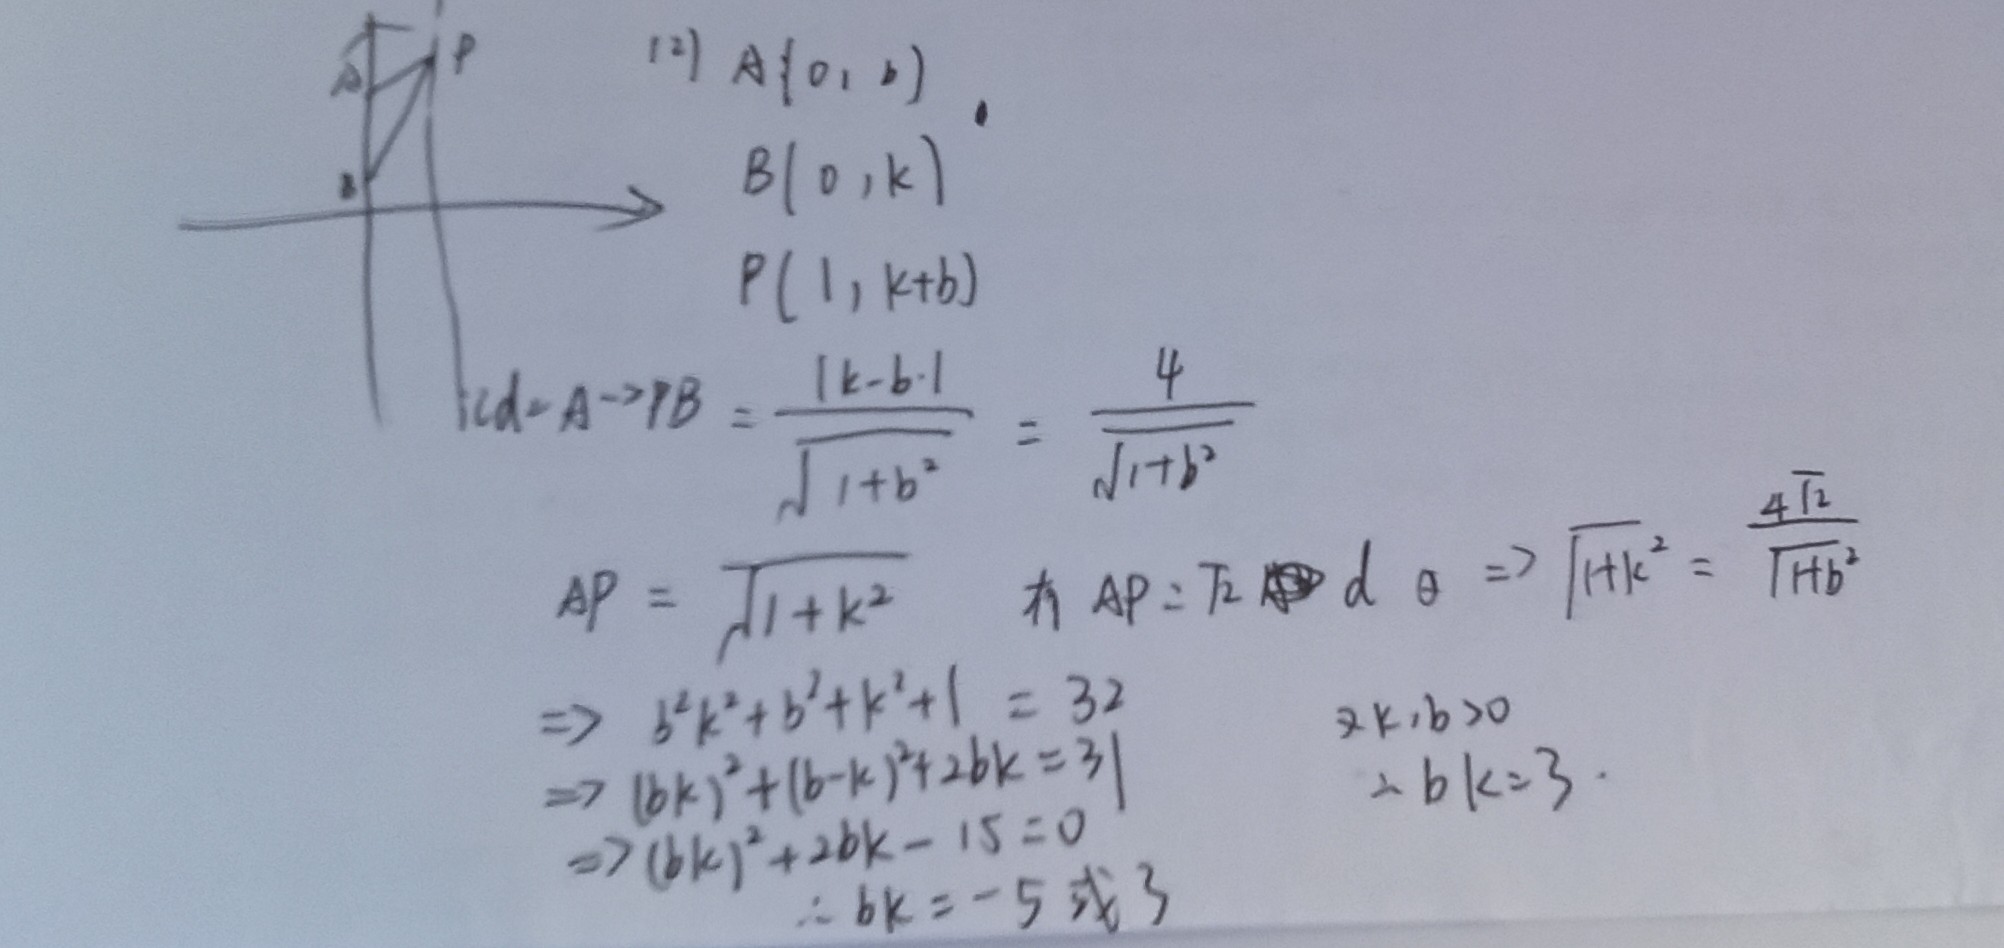 P
A
B
(2) A(0, b)
B(0, k)
P(1, k+b)
d = A->PB = |k-b| / √(1+b²) = 4 / √(1+b²)
AP = √(1+k²) 有 AP = √2 d => √(1+k²) = 4√2 / √(1+b²)
=> b²k²+b²+k²+1 = 32
又k,b>0
=> (bk)²+(b-k)²+2bk=31
∴ bk=3.
=> (bk)²+2bk-15=0
∴ bk=-5或3